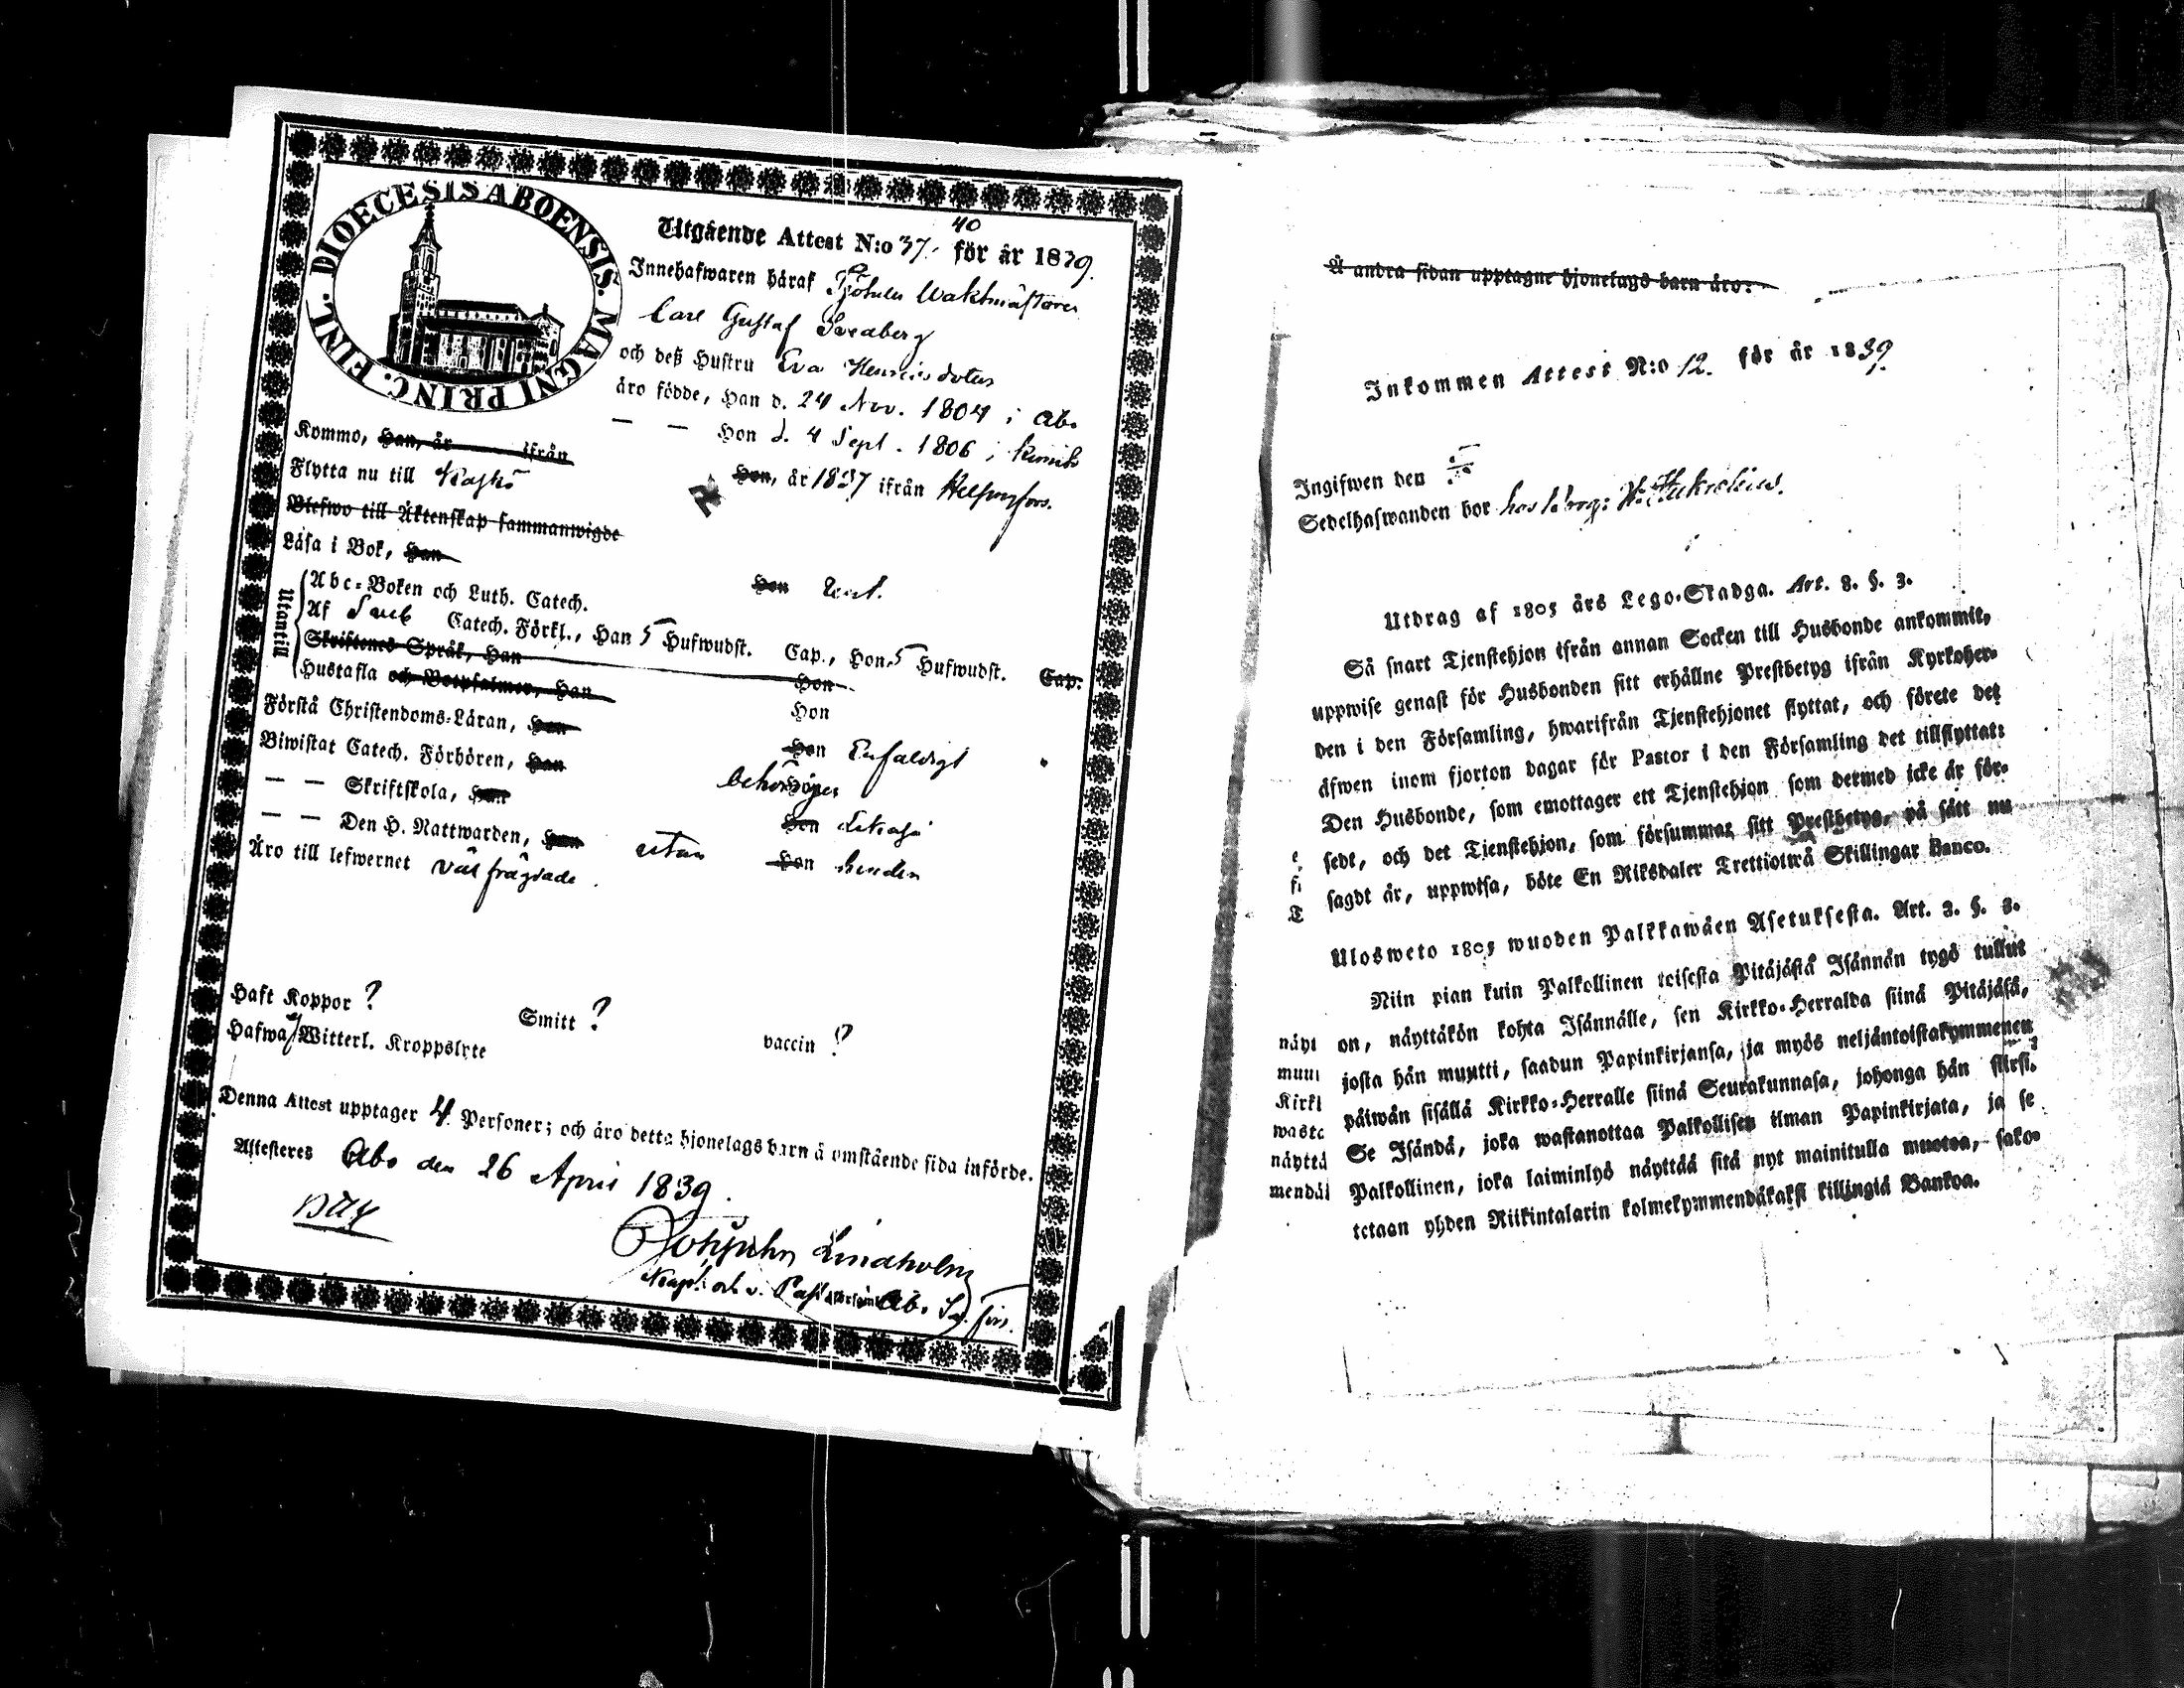 DIOECESIS ABOENSIS. MAGNI PRINC. FINL.
40
Utgående Attest N:o 37. för år 1839.
Innehafwaren häraf Waktmästaren
Carl Gustaf Svedberg
och deß Hustru Eva Henricsdoter
äro födde, Han d. 24 Nov. 1804 i Åbo
— — Hon d. 4 Sept. 1806 i Kimito
Kommo, Han, år ifrån Hon, år 1837 ifrån Helsingfors.
Flytta nu till Kaskö
Blefwo till Äktenskap sammanwigde
Läsa i Bok, Han Hon
Utantill
Abc-Boken och Luth. Catech.
Af Catech. Förkl., Han 5 Hufwudst. Cap., Hon 5 Hufwudst. Cap.
Skriftenes Språk, Han Hon
Hustafla och Botpsalmer, Han Hon
Förstå Christendoms-Läran, Han Hon Enfaldigt
Biwistat Catech. Förhören, Han behörigen Hon
— — Skriftskola, Han Hon
— — Den H. Nattwarden, Han utan Hon hinder
Äro till lefwernet väl frägdade.
Haft Koppor ? Smitt ? vaccin ?
Hafwa ej Witterl. Kroppslyte
Denna Attest upptager 4 Personer; och äro detta hjonelags barn å omstående sida införde.
Attesteres Åbo den 26 April 1839.
Lindholm
Kapl. och v. Pastor Åbo Sv. förs.
Å andra sidan upptagne hjonelags barn äro:
Inkommen Attest N:o 12. för år 1839.
Ingifwen den
Sedelhafwanden bor hos
Utdrag af 1805 års Lego-Stadga. Art. 8. §. 3.
Så snart Tjenstehjon ifrån annan Socken till Husbonde ankommit,
uppwise genast för Husbonden sitt erhållne Prestbetyg ifrån Kyrkoher-
den i den Församling, hwarifrån Tjenstehjonet flyttat, och förete det
äfwen inom fjorton dagar för Pastor i den Församling det tillflyttat:
Den Husbonde, som emottager ett Tjenstehjon som dermed icke är för-
sedt, och det Tjenstehjon, som försummar sitt Prestbetyg, på sätt nu
sagdt är, uppwisa, böte En Riksdaler Trettiotwå Skillingar Banco.
Ulosweto 1805 wuoden Palkkawäen Asetuksesta. Art. 3. §. 3.
Niin pian kuin Palkollinen toisesta Pitäjästä Isännän tygö tullut
on, näyttäkön kohta Isännälle, sen Kirkko-Herralda siinä Pitäjäsä,
josta hän muutti, saadun Papinkirjansa, ja myös neljäntoistakymmenen
päiwän sisällä Kirkko-Herralle siinä Seurakunnasa, johonga hän siirsi.
Se Isändä, joka wastanottaa Palkollisen ilman Papinkirjata, ja se
Palkollinen, joka laiminlyö näyttää sitä nyt mainitulla muotoa, sako-
tetaan yhden Riikintalarin kolmekymmendäkaksi killingiä Bankoa.